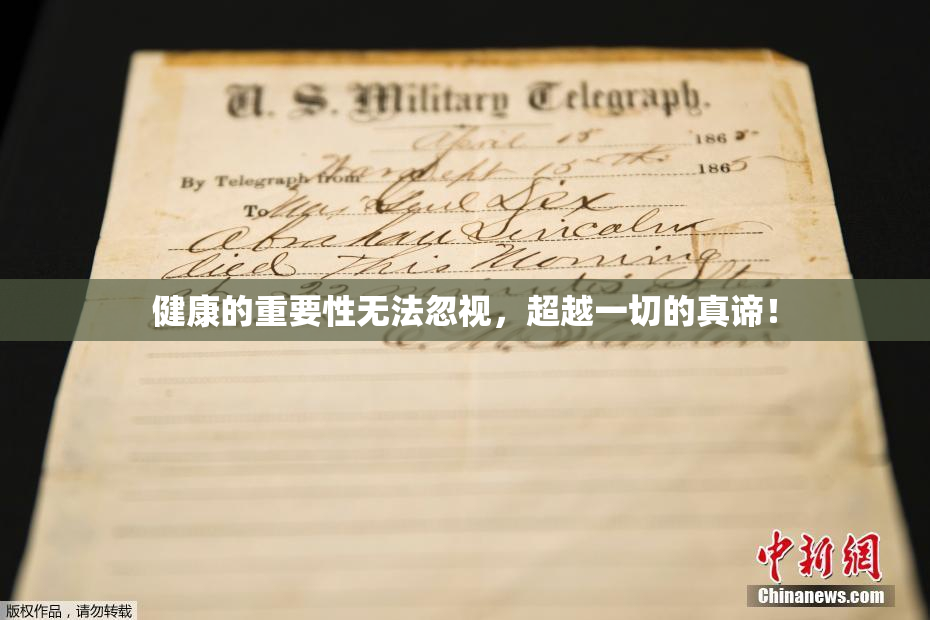 U. S. Military Telegraph.
April 15 1865
By Telegraph from War Dept 15th 1865
To Maj Genl Dix
Abraham Lincoln
died This Morning
at 22 minutes after
健康的重要性无法忽视，超越一切的真谛！
E. M. Stanton
中新网
Chinanews.com
版权作品，请勿转载